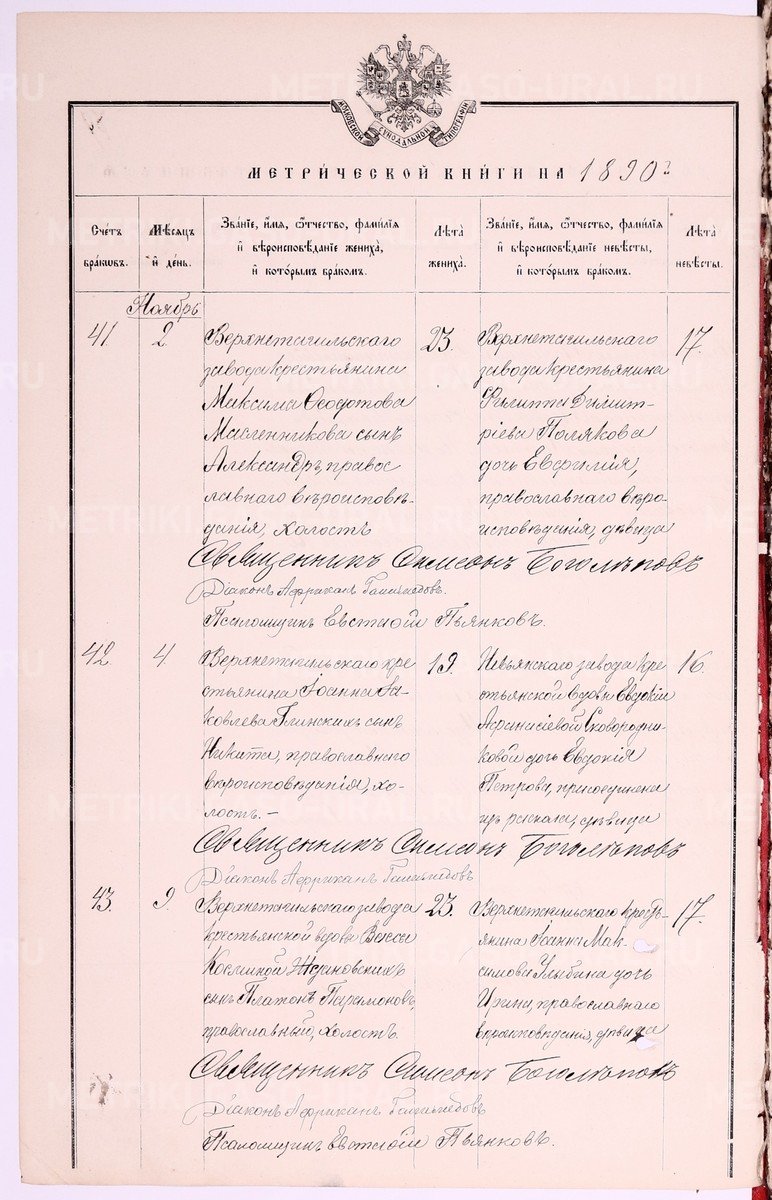 МОСКОВСКОЙ СѴНОДАЛЬНОЙ ТИПОГРАФІИ
МЕТРИ́ЧЕСКОЙ КНИ́ГИ НА 1890 г.
Сче́тъ бра́кωвъ.
Мѣ́сѧцъ и҆ де́нь.
Зва́нїе, и҆́мѧ, ѻ҆́тчество, фами́лїѧ
и҆ вѣроисповѣ́данїе жениха̀,
и҆ кото́рымъ бра́комъ.
Лѣ́та жениха̀.
Зва́нїе, и҆́мѧ, ѻ҆́тчество, фами́лїѧ
и҆ вѣроисповѣ́данїе невѣ́сты,
и҆ кото́рымъ бра́комъ.
Лѣ́та невѣ́сты.
Ноябрь
41
2
Верхнетагильскаго
завода крестьянина
Максима Ѳеодотова
Масленникова сынъ
Александръ, правос
лавнаго вѣроисповѣ-
данія, холостъ
23.
Верхнетагильскаго
завода крестьянина
Филиппа Димит-
ріева Полякова
дочь Евфимія,
православнаго вѣро-
исповѣданія, дѣвица
17.
Священникъ Симеонъ Боголѣповъ
Діаконъ Африканъ
Псаломщикъ Евстафій Пьянковъ.
42.
4.
Верхнетагильскаго кре
стьянина Іоанна Іа-
ковлева Глинскихъ сынъ
Никита, православнаго
вѣроисповѣданія, хо-
лостъ.-
19.
Невьянскаго завода кре
стьянской вдовы Евдокіи
Афанасіевой Сковородни-
ковой дочь Евдокія
Петрова, присоединена
изъ раскола, дѣвица
16.
Священникъ Симеонъ Боголѣповъ
Діаконъ Африканъ
43.
9
Верхнетагильскаго завода
крестьянской вдовы Вассы
Космчной Ждановскихъ
сынъ Платонъ Парамоновъ,
православный, холостъ.
23.
Верхнетагильскаго крест-
янина Іоанна Мак-
симова Улыбина дочь
Ирина, православнаго
вѣроисповѣданія, дѣвица
17.
Священникъ Симеонъ Боголѣповъ
Діаконъ Африканъ
Псаломщикъ Евстафій Пьянковъ.